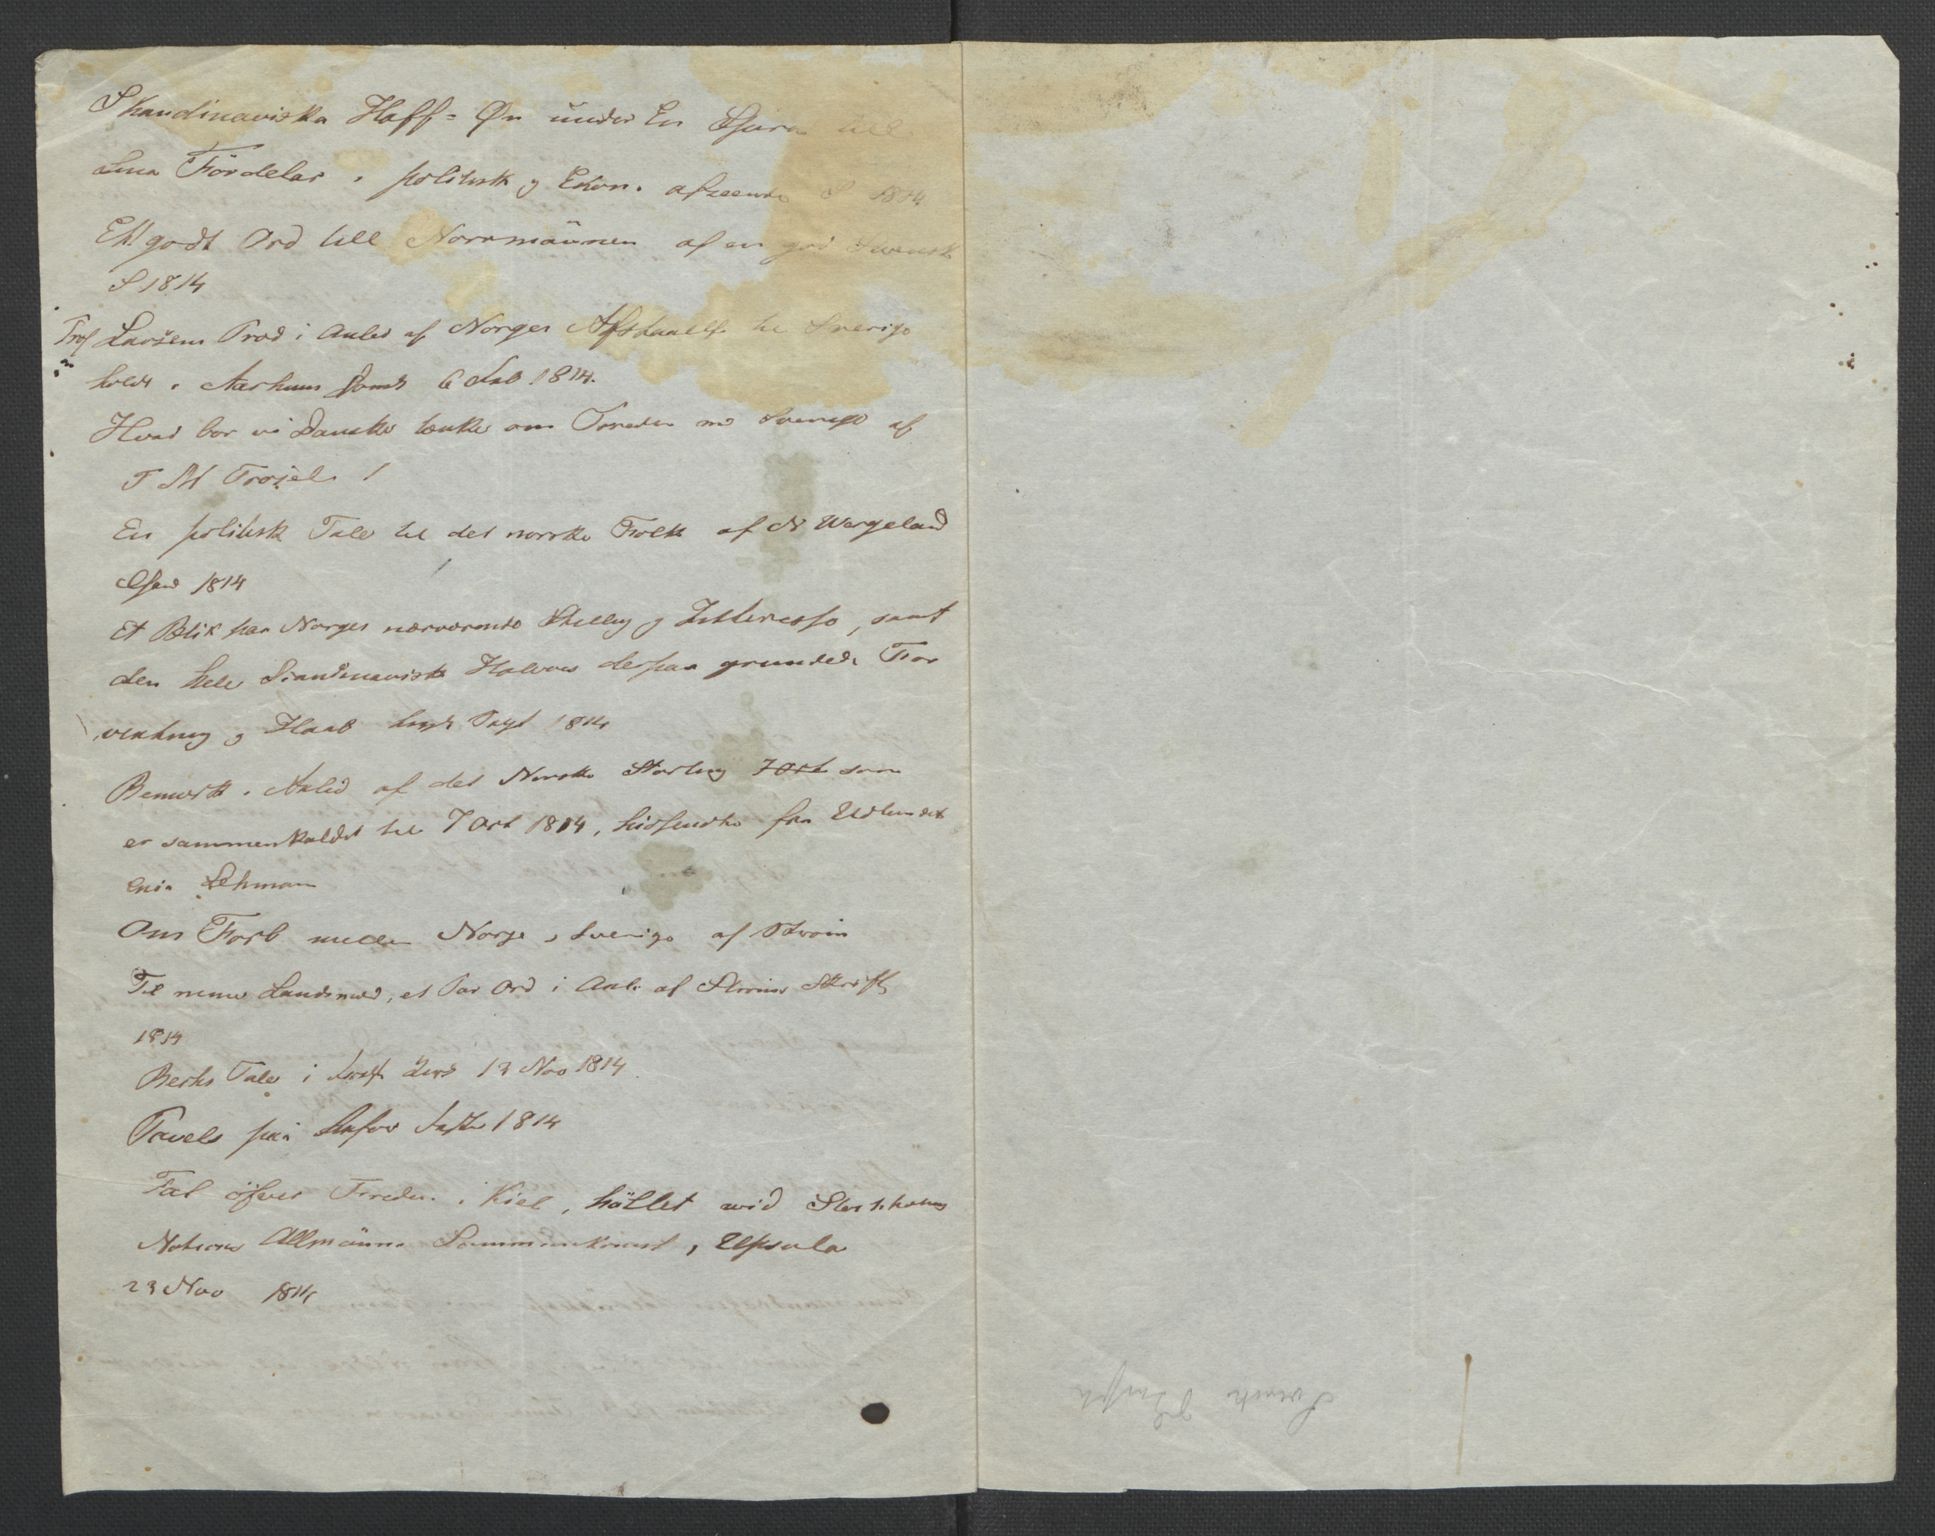 Skandinaviska Haff = Øn under En till
sina Fördelar i politisk g Ekon. afseende S 1814
Ett godt Ord till Norrmännen af en god Swensk
S 1814
Prof Larsens Præd i Anled af Norges Afstaaelse til Sverige
holdt i Aarhuus Domk 6 Feb 1814.
Hvad bør vi Danske tænke om Freden m Sverige af
T M Trojel 1
En politisk Tale til det norske Folk af N Wergeland
1814
Et Blik paa Norges nærværende Stilling g Interesse, samt
den hele Scandinaviske Halvøes derpaa grundede For
ventning g Haab 1814
Bemærk. i Anled af det Norske Storting 7 Oct som
er sammenkaldet til 7 Oct 1814, hidsendte fra Udlandet
Lehman
Om Forb mellem Norge g Sverige af Strøm
Til mine Landsmænd, et Par Ord i Anl. af Strøms Skrift
1814
Bechs Tale i 13 Nov 1814
Pavels paa 1814
Tal öfver Freden i Kiel, hållet wid Stockholms
Nations Allmänna Sammankomst i Upsala
23 Nov 1814
Svensk